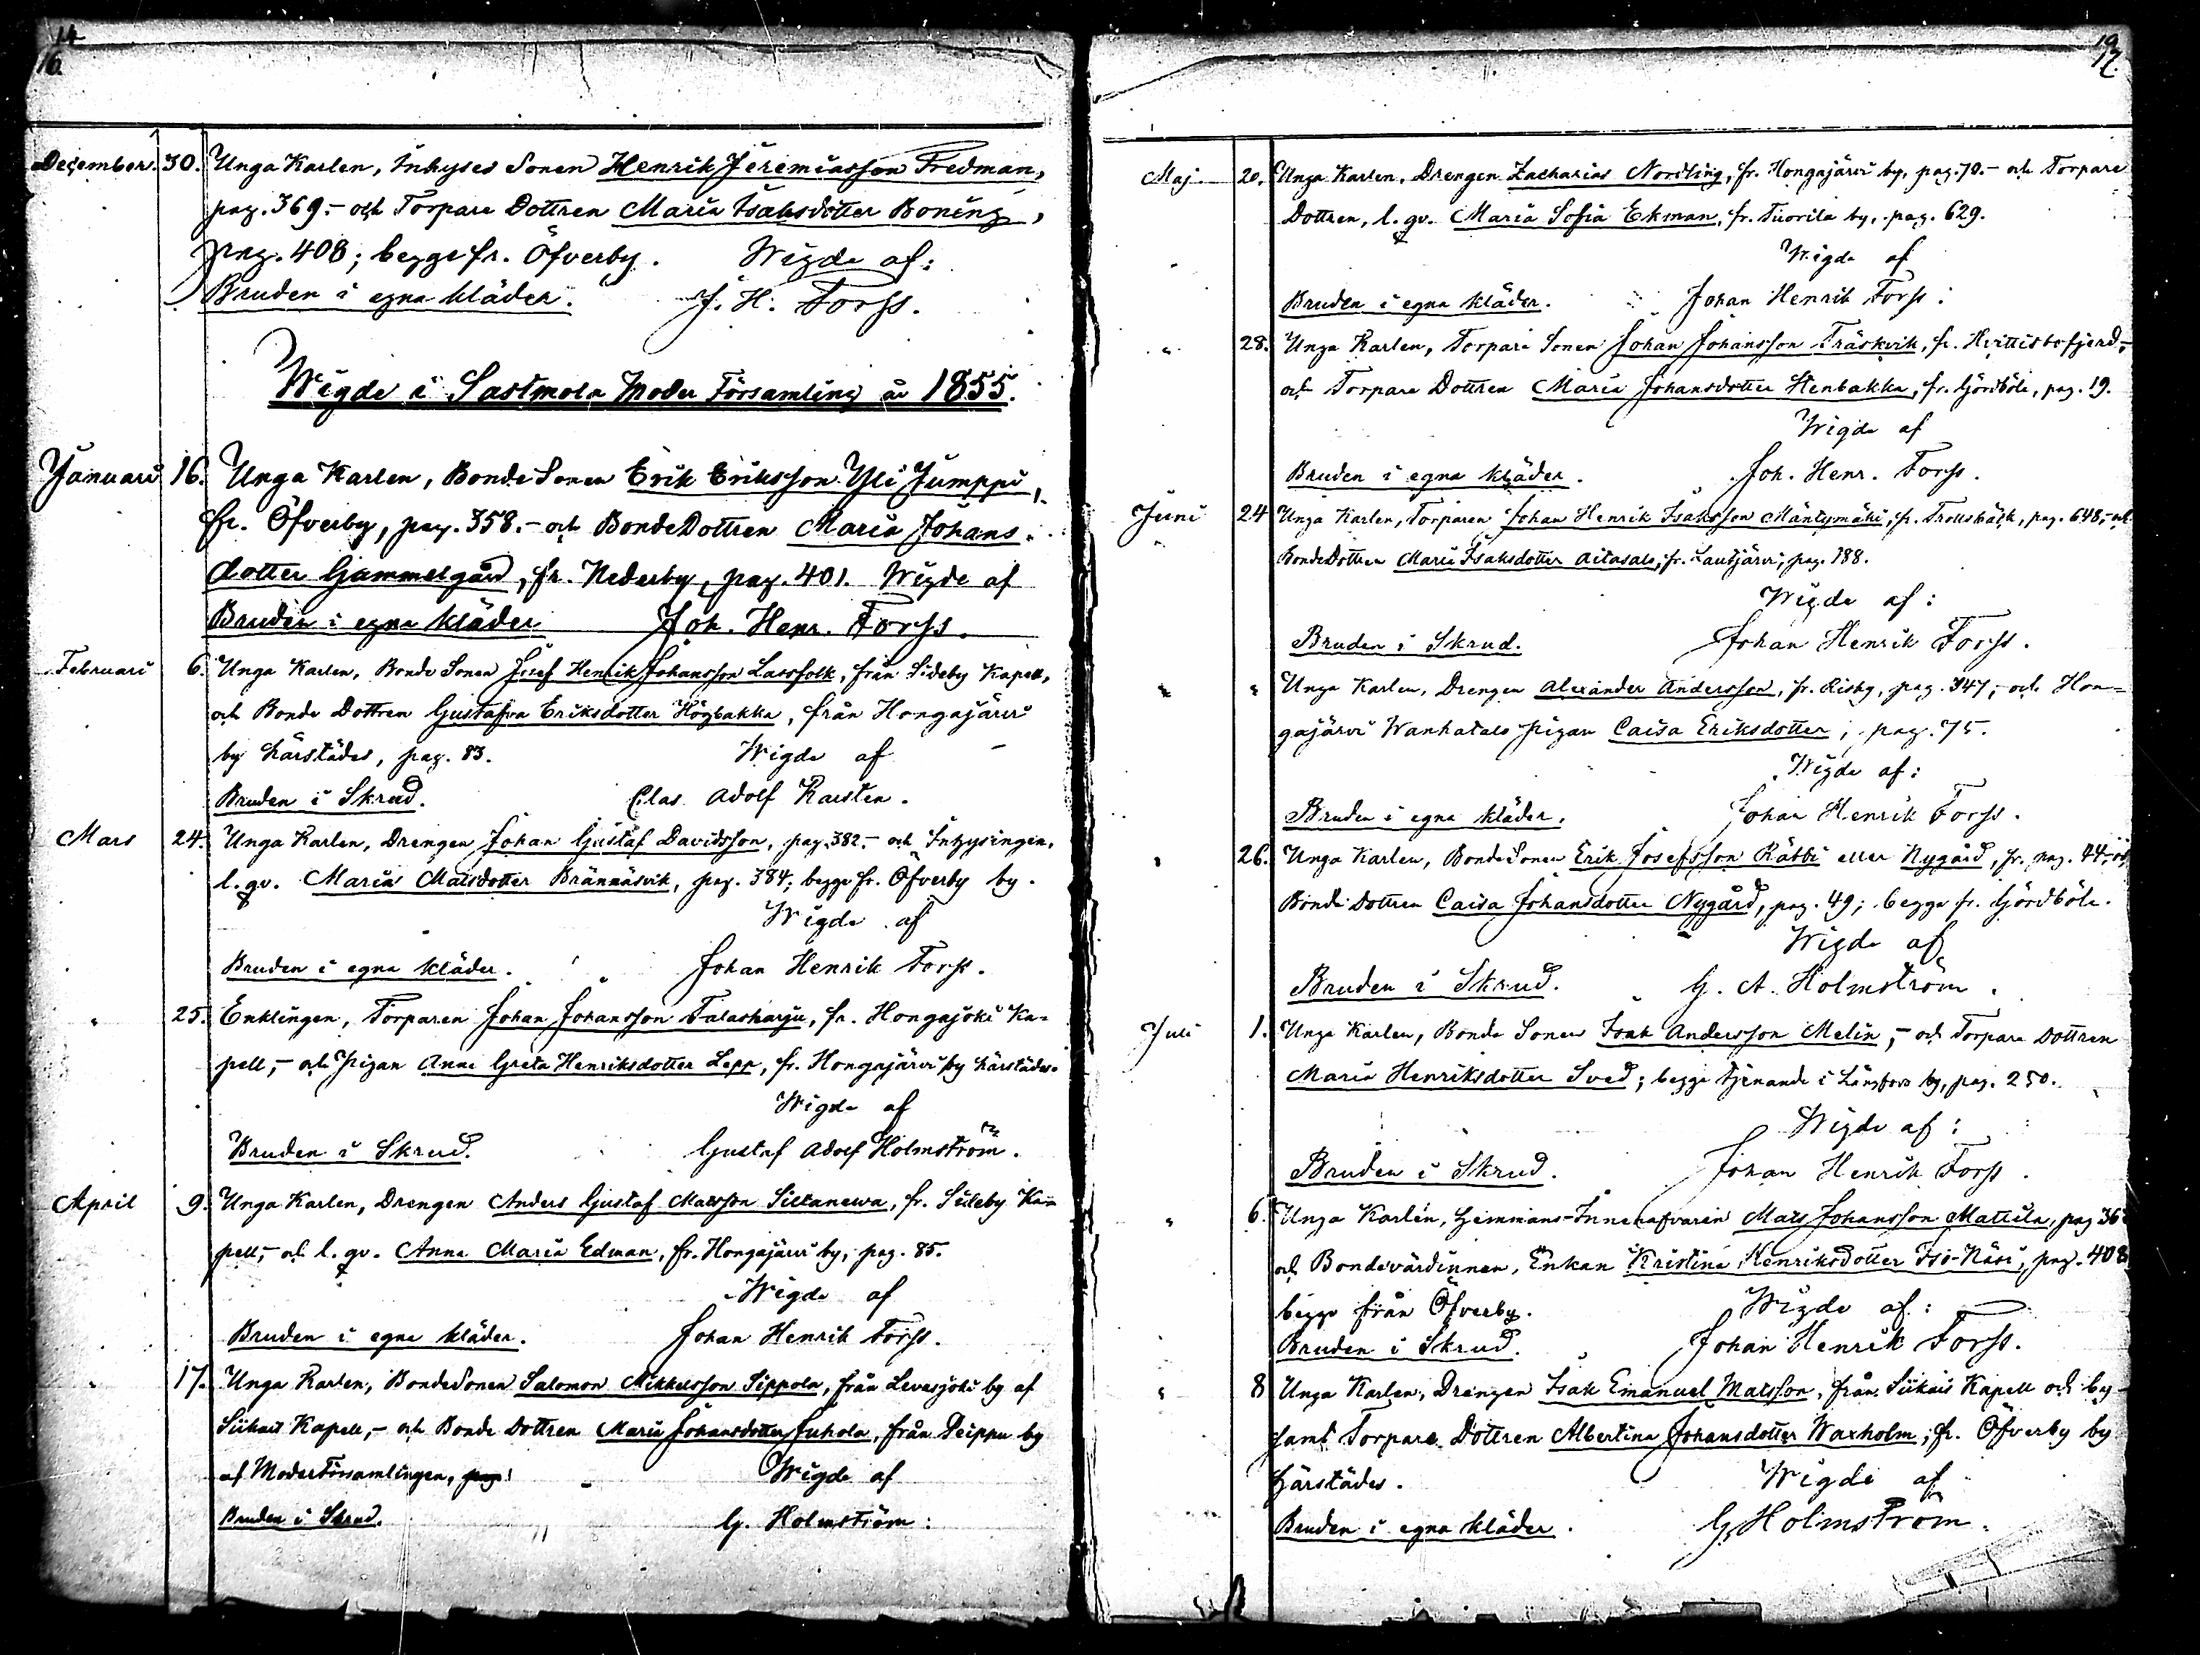 14
16
December. 30. Unga Karlen, Inhyses Sonen Henrik Jeremiasson Fredman,
pag. 369.- och Torpare Dottren Maria Isaksdotter Boning,
pag. 408; begge fr. Öfverby. Wigde af:
Bruden i egna kläder. J. H. Forss.
Wigde i Sastmola Moder Församling år 1855.
Januari 16. Unga Karlen, Bonde Sonen Erik Eriksson Yli Jumppi,
fr. Öfverby, pag. 358.- och BondeDottren Maria Johans-
dotter Gammelgård, fr. Nederby, pag. 401. Wigde af
Bruden i egna kläder Joh. Henr. Forss.
Februari 6. Unga Karlen, Bonde Sonen Josef Henrik Johansson Lassfolk, från Sideby Kapell,
och Bonde Dottren Gustafva Eriksdotter Högbakka, från Hongajärvi
by härstädes, pag. 83. Wigde af
Bruden i Skrud. Clas Adolf Karsten.
Mars 24. Unga Karlen, Drengen Johan Gustaf Davidsson, pag. 382.- och Inhysingen,
l. qv. Maria Matsdotter Brännäsvik, pag. 384; begge fr. Öfverby by.
Wigde af
Bruden i egna kläder. Johan Henrik Forss.
" 25. Enklingen, Torparen Johan Johansson Talasharju, fr. Hongojoki Ka-
pell,- och Pigan Anna Greta Henriksdotter Lepp, fr. Hongajärvi by härstädes.
Wigde af
Bruden i Skrud. Gustaf Adolf Holmström.
April 9. Unga Karlen, Drengen Anders Gustaf Matsson Siltanewa, fr. Sideby Ka-
pell,- och l. qv. Anna Maria Edman, fr. Hongajärvi by, pag. 85.
Wigde af
Bruden i egna kläder. Johan Henrik Forss.
" 17. Unga Karlen, BondeSonen Salomon Mikkelsson Sippola, från Levasjoki by af
Siikais Kapell,- och Bonde Dottren Maria Johansdotter Juhola, från Peippu by
af ModerFörsamlingen, pag.
Wigde af
Bruden i Skrud. G. Holmström:
17
Maj 20. Unga Karlen, Drengen Zacharias Nordling, fr. Hongajärvi by, pag. 70.- och Torpare
Dottren, l. qv. Maria Sofia Ekman, fr. Tuorila by, pag. 629.
Wigde af
Bruden i egna kläder. Johan Henrik Forss.
" 28. Unga Karlen, Torpare Sonen Johan Johansson Träskvik, fr. Hvittisbofjerd,-
och Torpare Dottren Maria Johansdotter Stenbakka, fr. Gjördböle, pag. 19.
Wigde af
Bruden i egna kläder. Joh. Henr. Forss.
Juni 24 Unga Karlen, Torparen Johan Henrik Isaksson Mäntymäki, fr. Trollsbäck, pag. 648,- och
BondeDottren Maria Isaksdotter Aitasalo, fr. Lautjärvi, pag. 188.
Wigde af:
Bruden i Skrud. Johan Henrik Forss.
" " Unga Karlen, Drengen Alexander Andersson, fr. Risby, pag. 347,- och Hon-
gajärvi Wanhatalo Pigan Caisa Eriksdotter, pag. 75.
Wigde af:
Bruden i egna kläder. Johan Henrik Forss.
" 26. Unga Karlen, BondeSonen Erik Josefsson Räbbi eller Nygård, fr. pag. 44,- och
Bonde Dottren Caisa Johansdotter Nygård, pag. 49; begge fr. Gjördböle.
Wigde af
Bruden i Skrud. G. A. Holmström.
Juli 1. Unga Karlen, Bonde Sonen Isak Andersson Melin,- och Torpare Dottren
Maria Henriksdotter Sved; begge tjenande i Långfors by, pag. 250.
Wigde af:
Bruden i Skrud. Johan Henrik Forss.
" 6. Unga Karlen, Hemmans-Innehafvaren Mats Johansson Mattila, pag 36
och Bondevärdinnan, Enkan Kristina Henriksdotter Iso-Käsi, pag. 408
begge från Öfverby. Wigde af:
Bruden i Skrud. Johan Henrik Forss.
" 8 Unga Karlen, Drengen Isak Emanuel Matsson, från Siikais Kapell och by
samt Torpare Dottren Albertina Johansdotter Waxholm, fr. Öfverby by
härstädes. Wigde af
Bruden i egna kläder. G. Holmström.